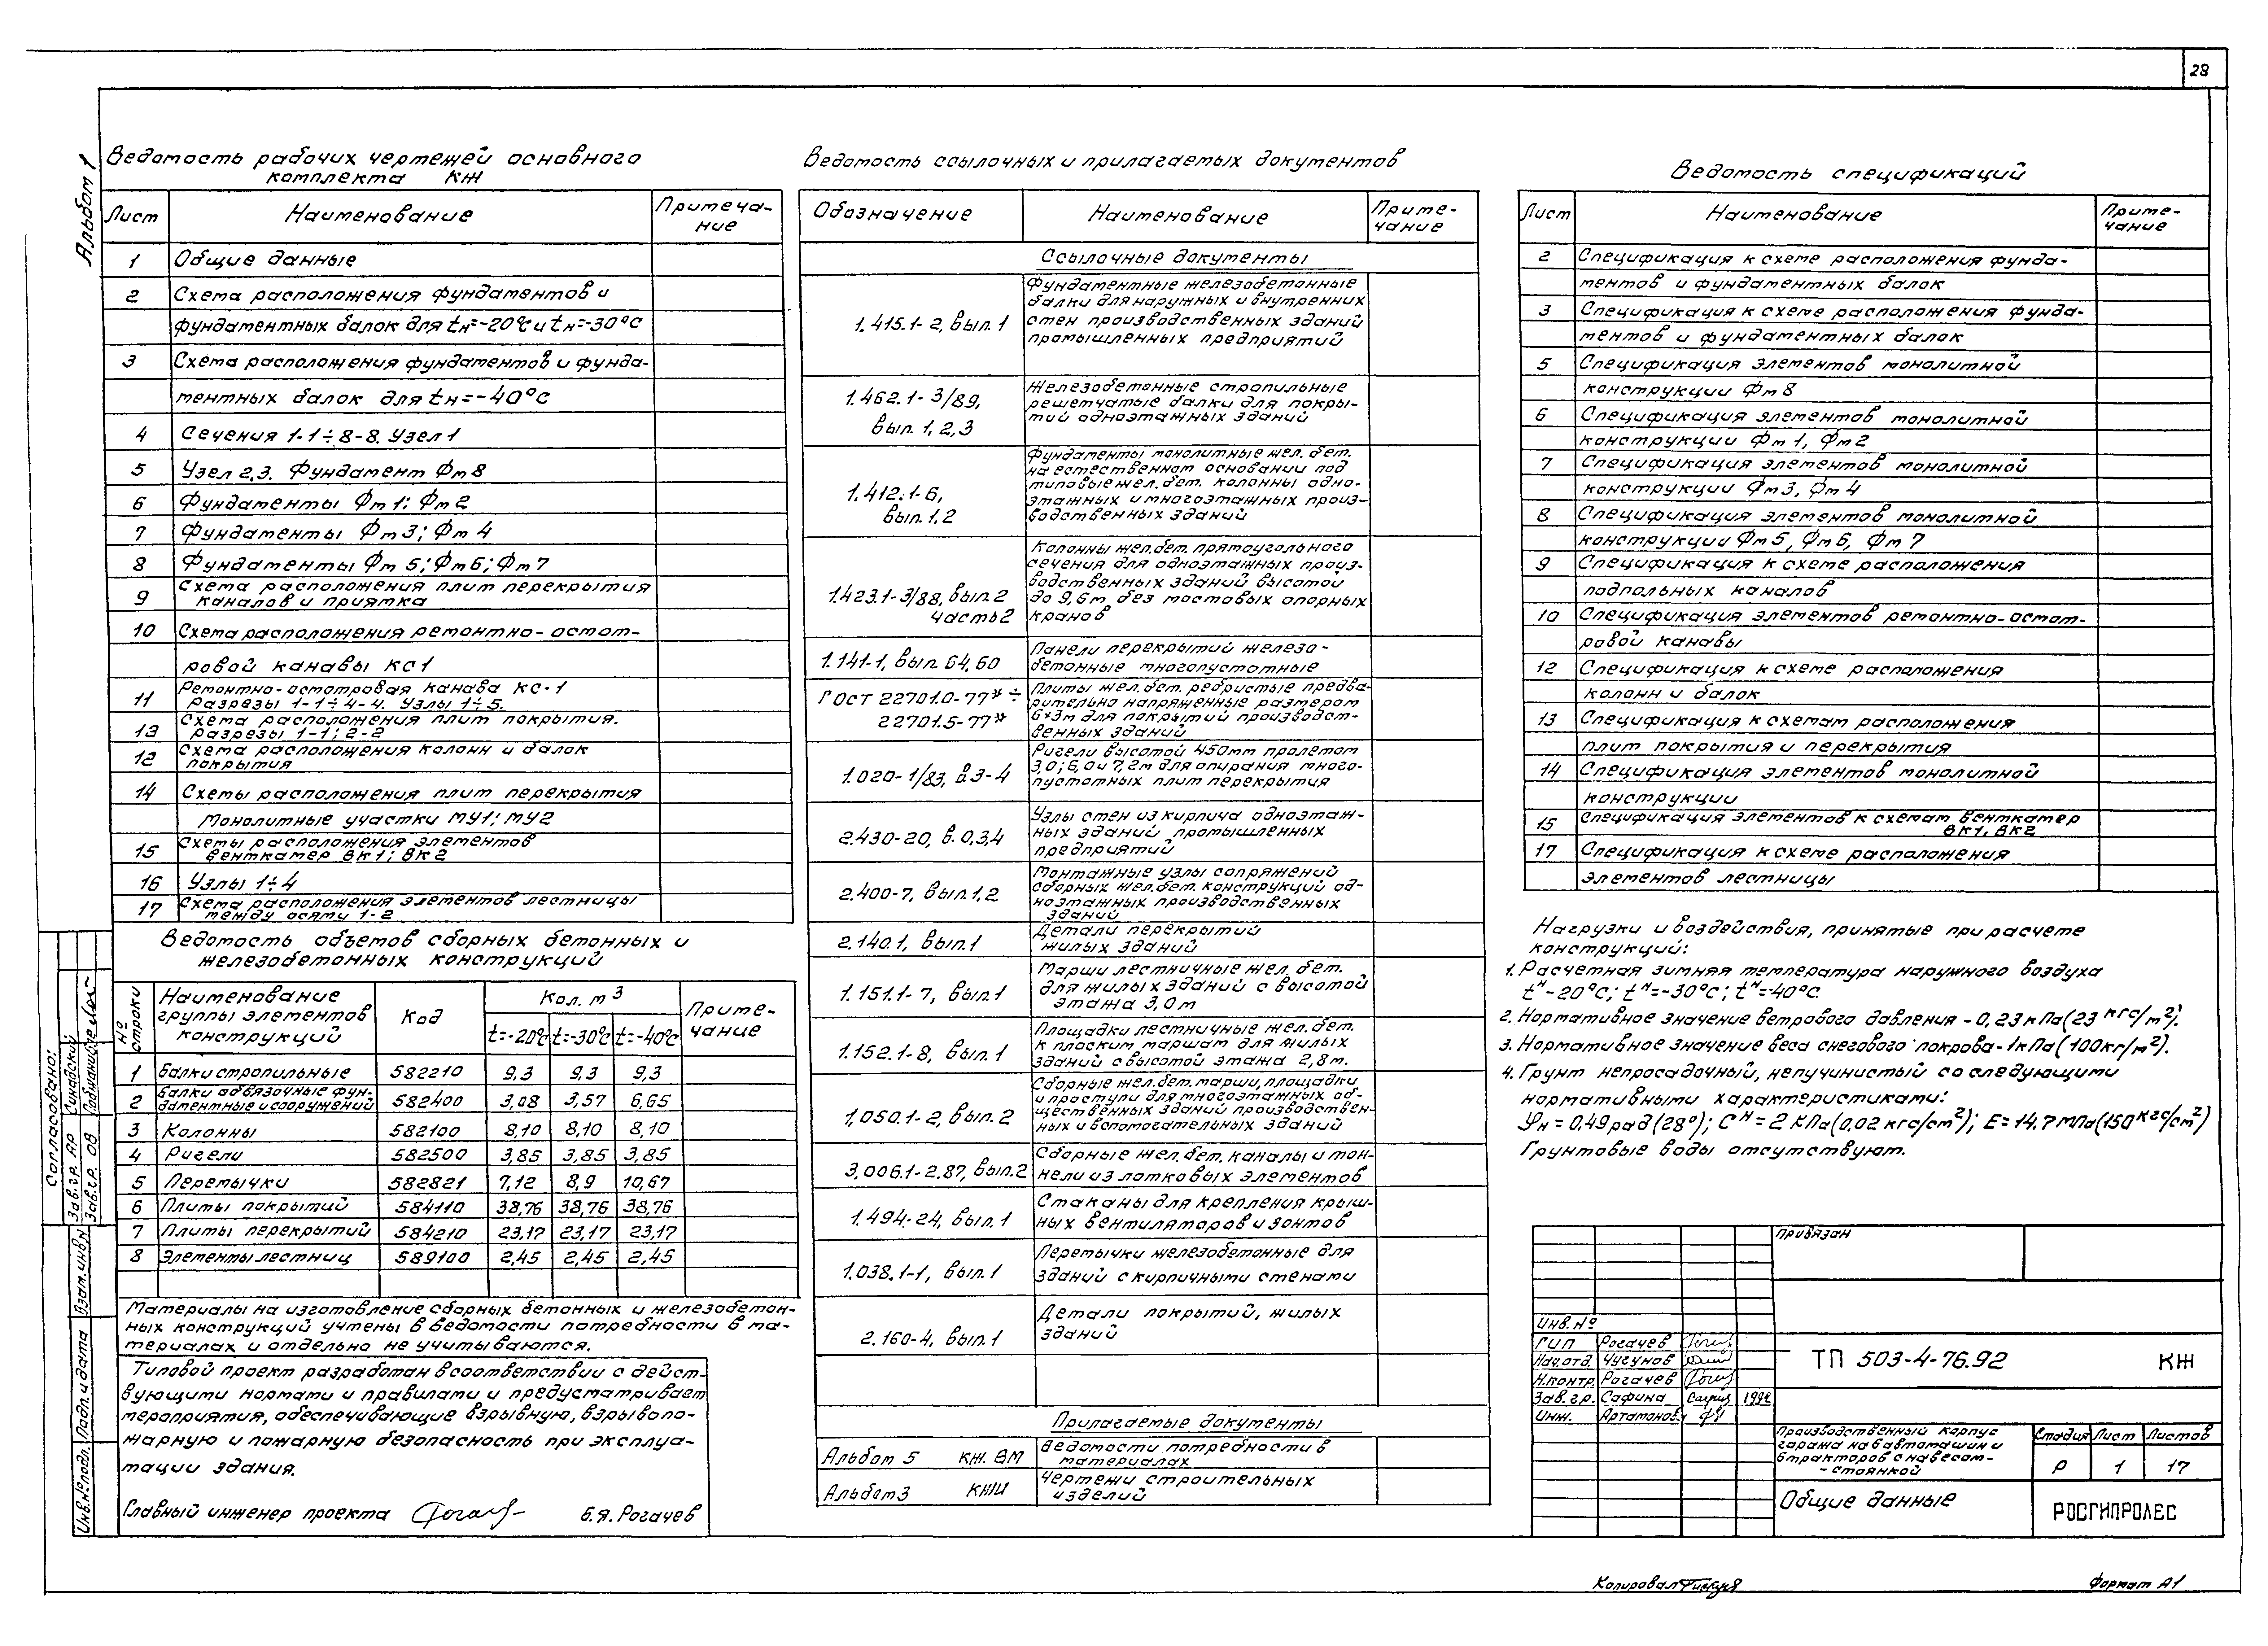 28
Альбом 1
Ведомость рабочих чертежей основного
комплекта КЖ
Лист Наименование Примеча-
ние
1 Общие данные
2 Схема расположения фундаментов и
фундаментных балок для tн=-20°С и tн=-30°С
3 Схема расположения фундаментов и фунда-
ментных балок для tн=-40°С
4 Сечения 1-1÷8-8. Узел 1
5 Узел 2,3. Фундамент Фм8
6 Фундаменты Фм1; Фм2
7 Фундаменты Фм3; Фм4
8 Фундаменты Фм5; Фм6; Фм7
9 Схема расположения плит перекрытия
каналов и приямка
10 Схема расположения ремонтно-осмот-
ровой канавы КС1
11 Ремонтно-осмотровая канава КС-1
Разрезы 1-1÷4-4. Узлы 1÷5.
13 Схема расположения плит покрытия.
Разрезы 1-1; 2-2
12 Схема расположения колонн и балок
покрытия
14 Схемы расположения плит перекрытия
Монолитные участки МУ1; МУ2
15 Схемы расположения элементов
венткамер ВК1; ВК2
16 Узлы 1÷4
17 Схема расположения элементов лестницы
между осями 1-2
Ведомость объемов сборных бетонных и
железобетонных конструкций
№ строки Наименование группы элементов конструкций Код Кол. м³ Приме-
чание
t=-20°С t=-30°С t=-40°С
1 Балки стропильные 582210 9,3 9,3 9,3
2 Балки обвязочные фун-
даментные и сооружений 582400 3,08 3,57 6,65
3 Колонны 582100 8,10 8,10 8,10
4 Ригели 582500 3,85 3,85 3,85
5 Перемычки 582821 7,12 8,9 10,67
6 Плиты покрытий 584110 38,76 38,76 38,76
7 Плиты перекрытий 584210 23,17 23,17 23,17
8 Элементы лестниц 589100 2,45 2,45 2,45
Материалы на изготовление сборных бетонных и железобетон-
ных конструкций учтены в ведомости потребности в ма-
териалах и отдельно не учитываются.
Типовой проект разработан в соответствии с дейст-
вующими нормами и правилами и предусматривает
мероприятия, обеспечивающие взрывную, взрывопо-
жарную и пожарную безопасность при эксплуа-
тации здания.
Главный инженер проекта Б.Я. Рогачев
Ведомость ссылочных и прилагаемых документов
Обозначение Наименование Приме-
чание
Ссылочные документы
1.415.1-2, вып.1 Фундаментные железобетонные
балки для наружных и внутренних
стен производственных зданий
промышленных предприятий
1.462.1-3/89,
вып. 1,2,3 Железобетонные стропильные
решетчатые балки для покры-
тий одноэтажных зданий
1.412.1-6,
вып.1,2 Фундаменты монолитные жел. бет.
на естественном основании под
типовые жел. бет. колонны одно-
этажных и многоэтажных произ-
водственных зданий
1.423.1-3/88, вып.2
часть 2 Колонны жел. бет. прямоугольного
сечения для одноэтажных произ-
водственных зданий высотой
до 9,6м без мостовых опорных
кранов
1.141-1, вып. 64,60 Панели перекрытий железо-
бетонные многопустотные
ГОСТ 22701.0-77* ÷
22701.5-77* Плиты жел. бет. ребристые предва-
рительно напряженные размером
6×3м для покрытий производст-
венных зданий
1.020-1/83, в.3-4 Ригели высотой 450мм пролетом
3,0; 6,0 и 7,2м для опирания много-
пустотных плит перекрытия
2.430-20, в. 0,3,4 Узлы стен из кирпича одноэтаж-
ных зданий промышленных
предприятий
2.400-7, вып.1,2 Монтажные узлы сопряжений
сборных жел. бет. конструкций од-
ноэтажных производственных
зданий
2.140.1, вып.1 Детали перекрытий
жилых зданий
1.151.1-7, вып.1 Марши лестничные жел. бет.
для жилых зданий с высотой
этажа 3,0м
1.152.1-8, вып.1 Площадки лестничные жел. бет.
к плоским маршам для жилых
зданий с высотой этажа 2,8м.
1.050.1-2, вып.2 Сборные жел. бет. марши, площадки
и проступи для многоэтажных об-
щественных зданий производствен-
ных и вспомогательных зданий
3.006.1-2.87, вып.2 Сборные жел. бет. каналы и тон-
нели из лотковых элементов
1.494-24, вып.1 Стаканы для крепления крыш-
ных вентиляторов и зонтов
1.038.1-1, вып.1 Перемычки железобетонные для
зданий с кирпичными стенами
2.160-4, вып.1 Детали покрытий, жилых
зданий
Прилагаемые документы
Альбом 5 КЖ. ВМ Ведомости потребности в
материалах
Альбом 3 КЖИ Чертежи строительных
изделий
Ведомость спецификаций
Лист Наименование Приме-
чание
2 Спецификация к схеме расположения фунда-
ментов и фундаментных балок
3 Спецификация к схеме расположения фунда-
ментов и фундаментных балок
5 Спецификация элементов монолитной
конструкции Фм8
6 Спецификация элементов монолитной
конструкции Фм1, Фм2
7 Спецификация элементов монолитной
конструкции Фм3, Фм4
8 Спецификация элементов монолитной
конструкции Фм5, Фм6, Фм7
9 Спецификация к схеме расположения
подпольных каналов
10 Спецификация элементов ремонтно-осмот-
ровой канавы
12 Спецификация к схеме расположения
колонн и балок
13 Спецификация к схемам расположения
плит покрытия и перекрытия
14 Спецификация элементов монолитной
конструкции
15 Спецификация элементов к схемам венткамер
ВК1, ВК2
17 Спецификация к схеме расположения
элементов лестницы
Нагрузки и воздействия, принятые при расчете
конструкций:
1. Расчетная зимняя температура наружного воздуха
tн-20°С; tн=-30°С; tн=40°С.
2. Нормативное значение ветрового давления - 0,23кПа(23 кгс/м²).
3. Нормативное значение веса снегового покрова-1кПа(100кг/м²).
4. Грунт непросадочный, непучинистый со следующими
нормативными характеристиками:
φн=0.49рад(28°); Cн=2кПа(0,02кгс/см²); E=14.7МПа(150кгс/см²)
Грунтовые воды отсутствуют.
Согласовано:
Зав.гр. АР Синадский
Зав.гр. ОВ
Взам. инв.№
Подп. и дата
Инв.№подл.
Привязан
Инв.№
ГИП Рогачев
Нач.отд. Чугунов
Н.контр. Рогачев
Зав.гр. Сафина 1992
Инж. Артамонов
ТП 503-4-76.92 КЖ
Производственный корпус
гаража на 6 автомашин и
6 тракторов с навесом-
-стоянкой
Стадия Лист Листов
Р 1 17
Общие данные
РОСГИПРОЛЕС
Копировал
Формат А1